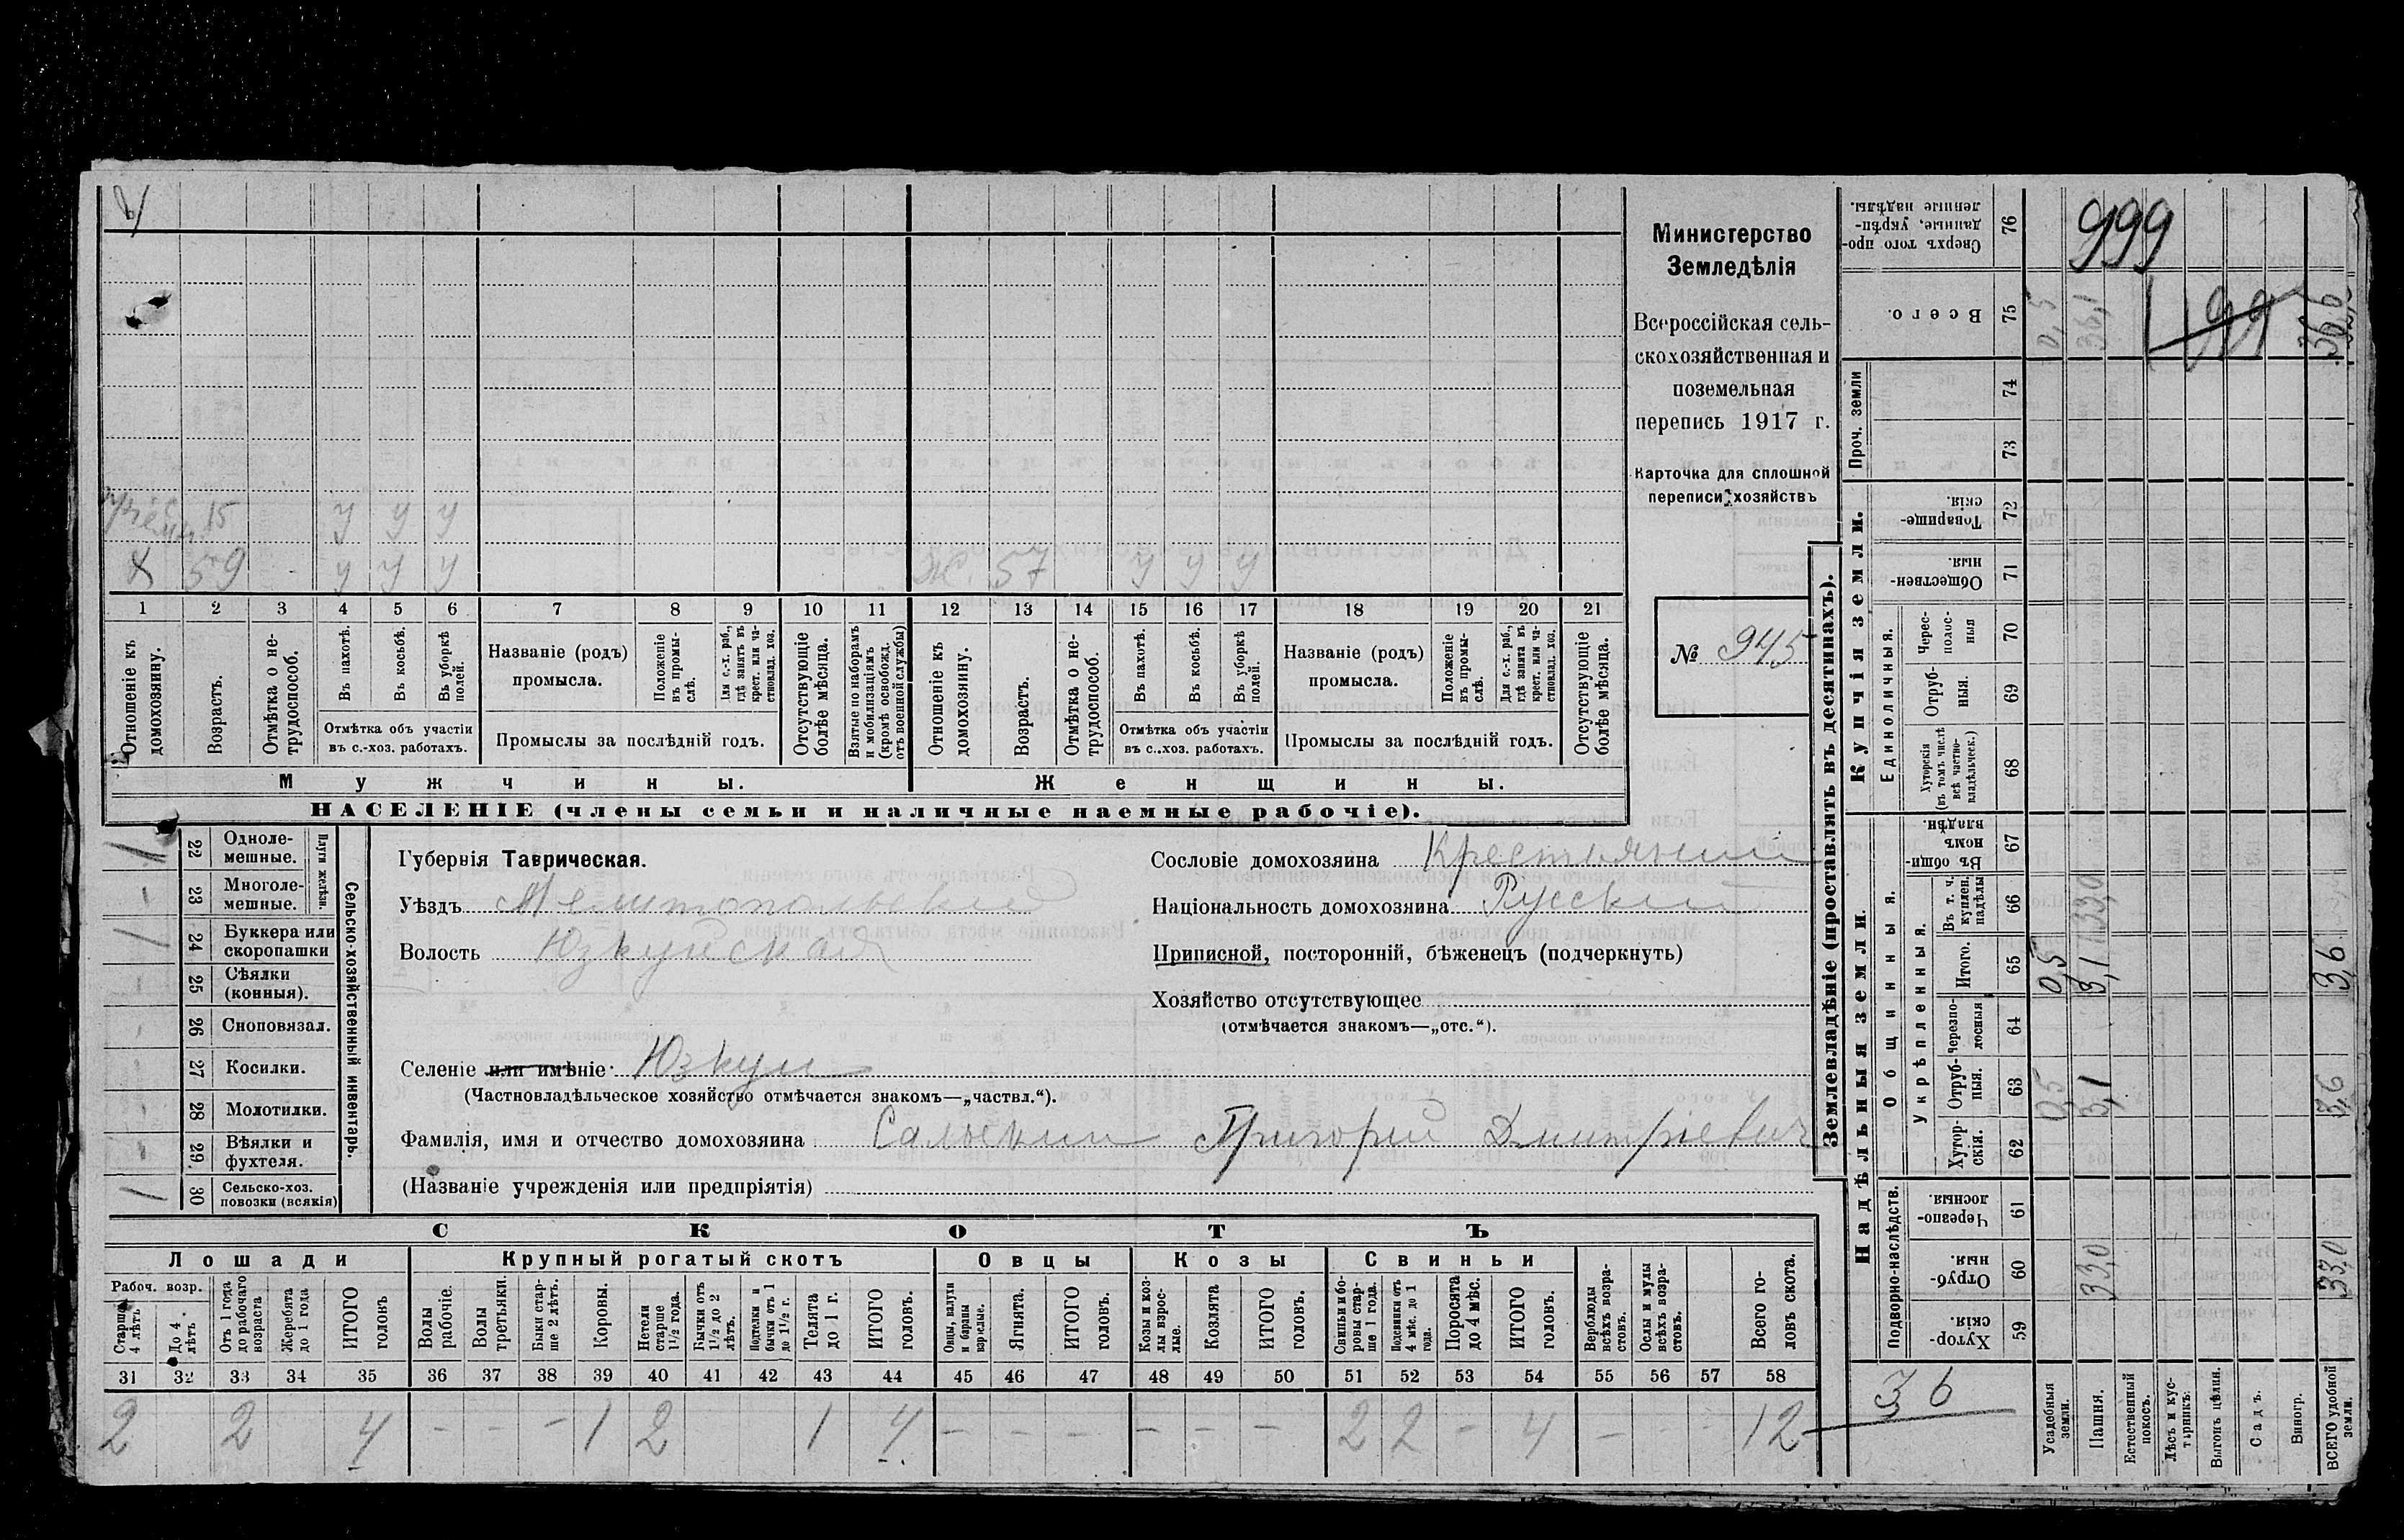 999
Министерство
Земледѣлія
Всероссійская сель-
скохозяйственная и
поземельная
перепись 1917 г.
Карточка для сплошной
переписи хозяйствъ
№ 945
15 у у у
Х 59 - у у у Ж. 57 у у у
1 2 3 4 5 6 7 8 9 10 11 12 13 14 15 16 17 18 19 20 21
Отношеніе къ домохозяину.
Возрастъ.
Отмѣтка о не-трудоспособ.
Въ пахотѣ.
Въ косьбѣ.
Въ уборкѣ полей.
Отмѣтка объ участіи
въ с.-хоз. работахъ.
Названіе (родъ)
промысла.
Положеніе въ промы-слѣ.
Для с.-х. раб., гдѣ занятъ въ крест. или ча-стновлад. хоз.
Промыслы за послѣдній годъ.
Отсутствующіе болѣе мѣсяца.
Взятые по наборамъ и мобилизаціямъ (кромѣ освобожд. отъ военной службы)
Отношеніе къ домохозяину.
Возрастъ.
Отмѣтка о не-трудоспособ.
Въ пахотѣ.
Въ косьбѣ.
Въ уборкѣ полей.
Отмѣтка объ участіи
въ с.-хоз. работахъ.
Названіе (родъ)
промысла.
Положеніе въ промы-слѣ.
Для с.-х. раб., гдѣ занята въ крест. или ча-стновлад. хоз.
Промыслы за послѣдній годъ.
Отсутствующіе болѣе мѣсяца.
Мужчины. Женщины.
НАСЕЛЕНІЕ (члены семьи и наличные наемные рабочіе).
Сельско-хозяйственный инвентарь.
Плуги желѣзн.
1 22 Одноле-мешные.
- 23 Многоле-мешные.
1 24 Буккера или скоропашки
- 25 Сѣялки (конныя).
- 26 Сноповязал.
- 27 Косилки.
- 28 Молотилки.
- 29 Вѣялки и фухтеля.
1 30 Сельско-хоз. повозки (всякія)
Губернія Таврическая.
Уѣздъ Мелитопольскій
Волость Юзкуйская
Селеніе или имѣніе Юзкуи
(Частновладѣльческое хозяйство отмѣчается знакомъ—„частвл.“).
Фамилія, имя и отчество домохозяина Григорій Дмитріевич
(Названіе учрежденія или предпріятія)
Сословіе домохозяина Крестьянин
Національность домохозяина Русскій
Приписной, посторонній, бѣженецъ (подчеркнуть)
Хозяйство отсутствующее
(отмѣчается знакомъ—„отс.“).
СКОТЪ
Лошади Крупный рогатый скотъ Овцы Козы Свиньи
Рабоч. возр.
Старше 4 лѣтъ
До 4 лѣтъ
Отъ 1 года до рабочаго возраста
Жеребята до 1 года
ИТОГО головъ
Волы рабочіе.
Волы третьяки.
Быки стар-ше 2 лѣтъ.
Коровы.
Нетели старше 1½ года.
Бычки отъ 1½ до 2 лѣтъ.
Подтелки и бычки отъ 1 до 1½ г.
Телята до 1 г.
ИТОГО головъ.
Овцы, валухи и бараны взрослые.
Ягнята.
ИТОГО головъ.
Козы и коз-лы взрос-лые.
Козлята
ИТОГО головъ.
Свиньи и бо-ровы стар-ше 1 года.
Подсвинки отъ 4 мѣс. до 1 года.
Поросята до 4 мѣс.
ИТОГО головъ.
Верблюды всѣхъ возра-стовъ.
Ослы и мулы всѣхъ возра-стовъ.
Всего го-ловъ скота.
31 32 33 34 35 36 37 38 39 40 41 42 43 44 45 46 47 48 49 50 51 52 53 54 55 56 57 58
2 2 4 - - - 1 2 1 4 - - - - - - 2 2 - 4 - - - 12
36
Землевладѣніе (проставлять въ десятинахъ).
Надѣльныя земли. Купчія земли. Проч. земли
Подворно-наслѣдств. Общинныя. Укрѣпленныя. Единоличныя.
Хутор-скія. 59
Отруб-ныя. 60 33,0 33,0
Черезпо-лосныя. 61
Хутор-скія. 62
Отруб-ныя. 63 0,5 3,1 3,6
Черезпо-лосныя 64
Итого. 65 0,5 3,1 3,6
Въ т. ч. куплен. надѣлы 66 33,0
Въ общин-номъ владѣн. 67
Хуторскія (въ томъ числѣ всѣ частно-владѣльческ.) 68
Отруб-ныя. 69
Черес-полос-ныя 70
Обществен-ныя. 71
Товарище-скія. 72
73
74
Всего. 75 0,5 36,1 199 36,6
Сверхъ того про-данные, укрѣп-ленные надѣлы. 76
Усадебныя земли.
Пашня.
Естественный покосъ.
Лѣсъ и кус-тарникъ.
Выгонъ цѣлин.
Садъ.
Виногр.
ВСЕГО удобной земли.